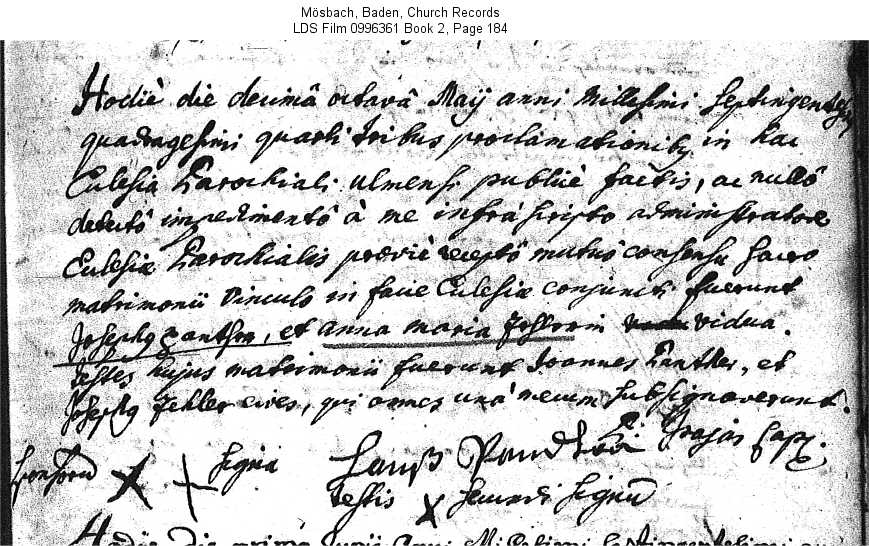 Mösbach, Baden, Church Records
LDS Film 0996361 Book 2, Page 184
Hodiè die decimâ octavâ Maÿ anni Millesimi septingentesimi
quadragesimi quarti tribus proclamationibq in hac
Eclesiâ Parochiali ulmensi publicè factis, ac nullô
detectô impedimentô à me infrà scripto administratore
Eclesiæ Parochialis præviè receptô mutuô consensu sacro
matrimonii vinculo in facie Eclesiæ conjuncti fuerunt
Josephq panther, et anna maria vidua.
Testes hujus matrimonii fuerunt Joannes Panther, et
Josephq Fehler cives, qui omnes unà mecum subsignaverunt.
P. Trajan Cap.
sponsorum X + signa
Hanß
testis X secundi signum
Hodie die prima Junii Anni